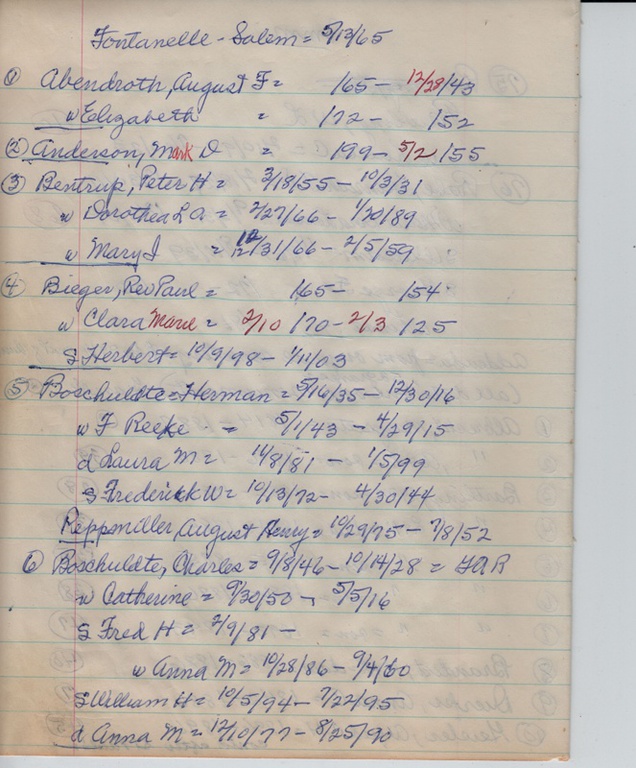 Fontanelle - Salem = 5/13/65
① Abendroth, August F = /65 - 12/28/43
w Elizabeth = /72 - /52
② Anderson, Mark D = /99 - 5/2/55
③ Bentrup, Peter H = 3/18/55 - 10/3/31
w Dorothea L A = 2/27/66 - 1/20/89
w Mary I = 12/31/66 - 2/5/59
④ Bieger, Rev Paul = /65 - /54
w Clara Marie = 2/10 /70 - 2/3 /25
S Herbert = 10/9/98 - 1/11/03
⑤ Boschuldte = Herman = 5/16/35 - 12/30/16
w F Reeke = 5/1/43 - 4/29/15
d Laura M = 11/8/81 - 1/5/99
S Frederick W = 10/13/72 - 4/30/44
Peppmiller, August Henry = 10/29/75 - 7/8/52
⑥ Boschuldte, Charles = 9/8/46 - 10/14/28 = GAR
w Catherine = 9/30/50 - 5/5/16
S Fred H = 2/9/81 -
w Anna M = 10/28/86 - 9/4/60
S William H = 10/5/94 - 7/22/95
d Anna M = 12/10/77 - 8/25/90